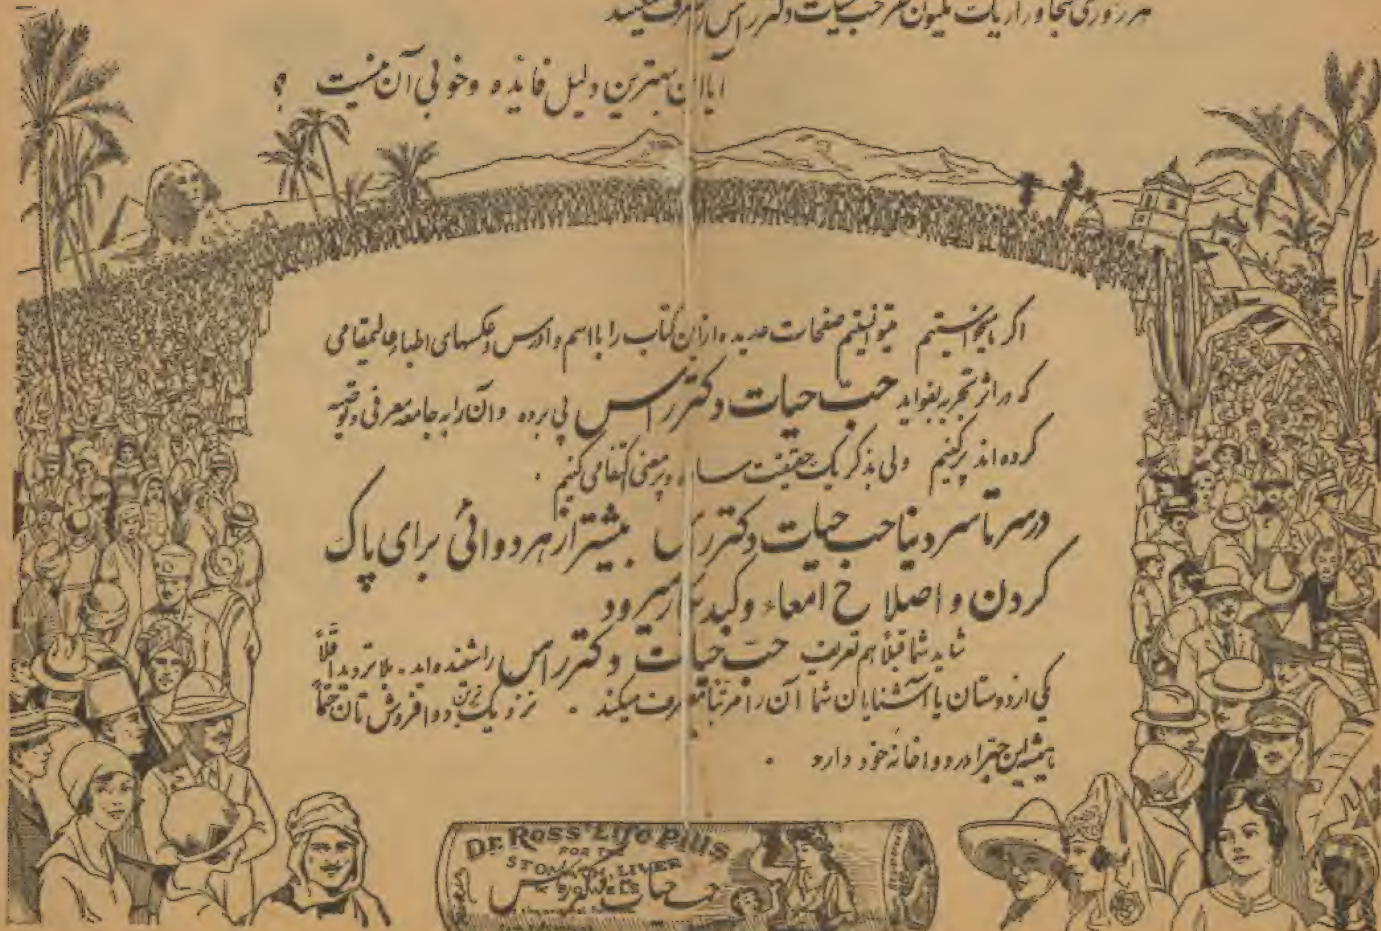 هر روزی متجاوز از یک ملیون نفر حب حیات دکتر راس را صرف میکنند
آیا این بهترین دلیل فایده و خوبی آن نیست ؟
اگر میخواستیم میتوانستیم صفحات عدیده از این کتاب را با اسم و ادرس و عکسهای اطباء عالیمقامی
که در اثر تجربه بفواید حبّ حیات دکتر راس پی برده و آن را به جامعه معرفی و توصیه
کرده اند پر کنیم ولی بذکر یک حقیقت ساده و پر معنی اکتفا می کنیم .
در سر تا سر دنیا حب حیات دکتر راس بیشتر از هر دوائی برای پاک
کردن و اصلاح امعاء و کبد بکار میرود
شاید شما قبلاً هم تعریف حبّ حیات دکتر راس را شنفته اند . بلا تردید اقلاً
یکی از دوستان یا آشنایان شما آن را مرتباً صرف میکند . نزدیک ترین دوا فروش تان حتماً
همیشه این حب را در دواخانه خود دارد .
Dr. Ross' Life Pills
FOR THE
STOMACH, LIVER
& BOWELS
حب حیات دکتر راس